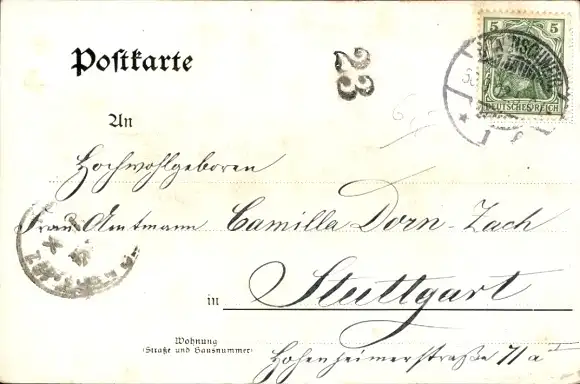 Postkarte
23
5 5
BRAUNSCHWEIG
DEUTSCHES REICH
1
An
Hochwohlgeboren
Frau Amtmann Camilla Dorn-Zach
in Stuttgart
Wohnung
(Straße und Hausnummer)
Hohenheimerstraße 71 a I